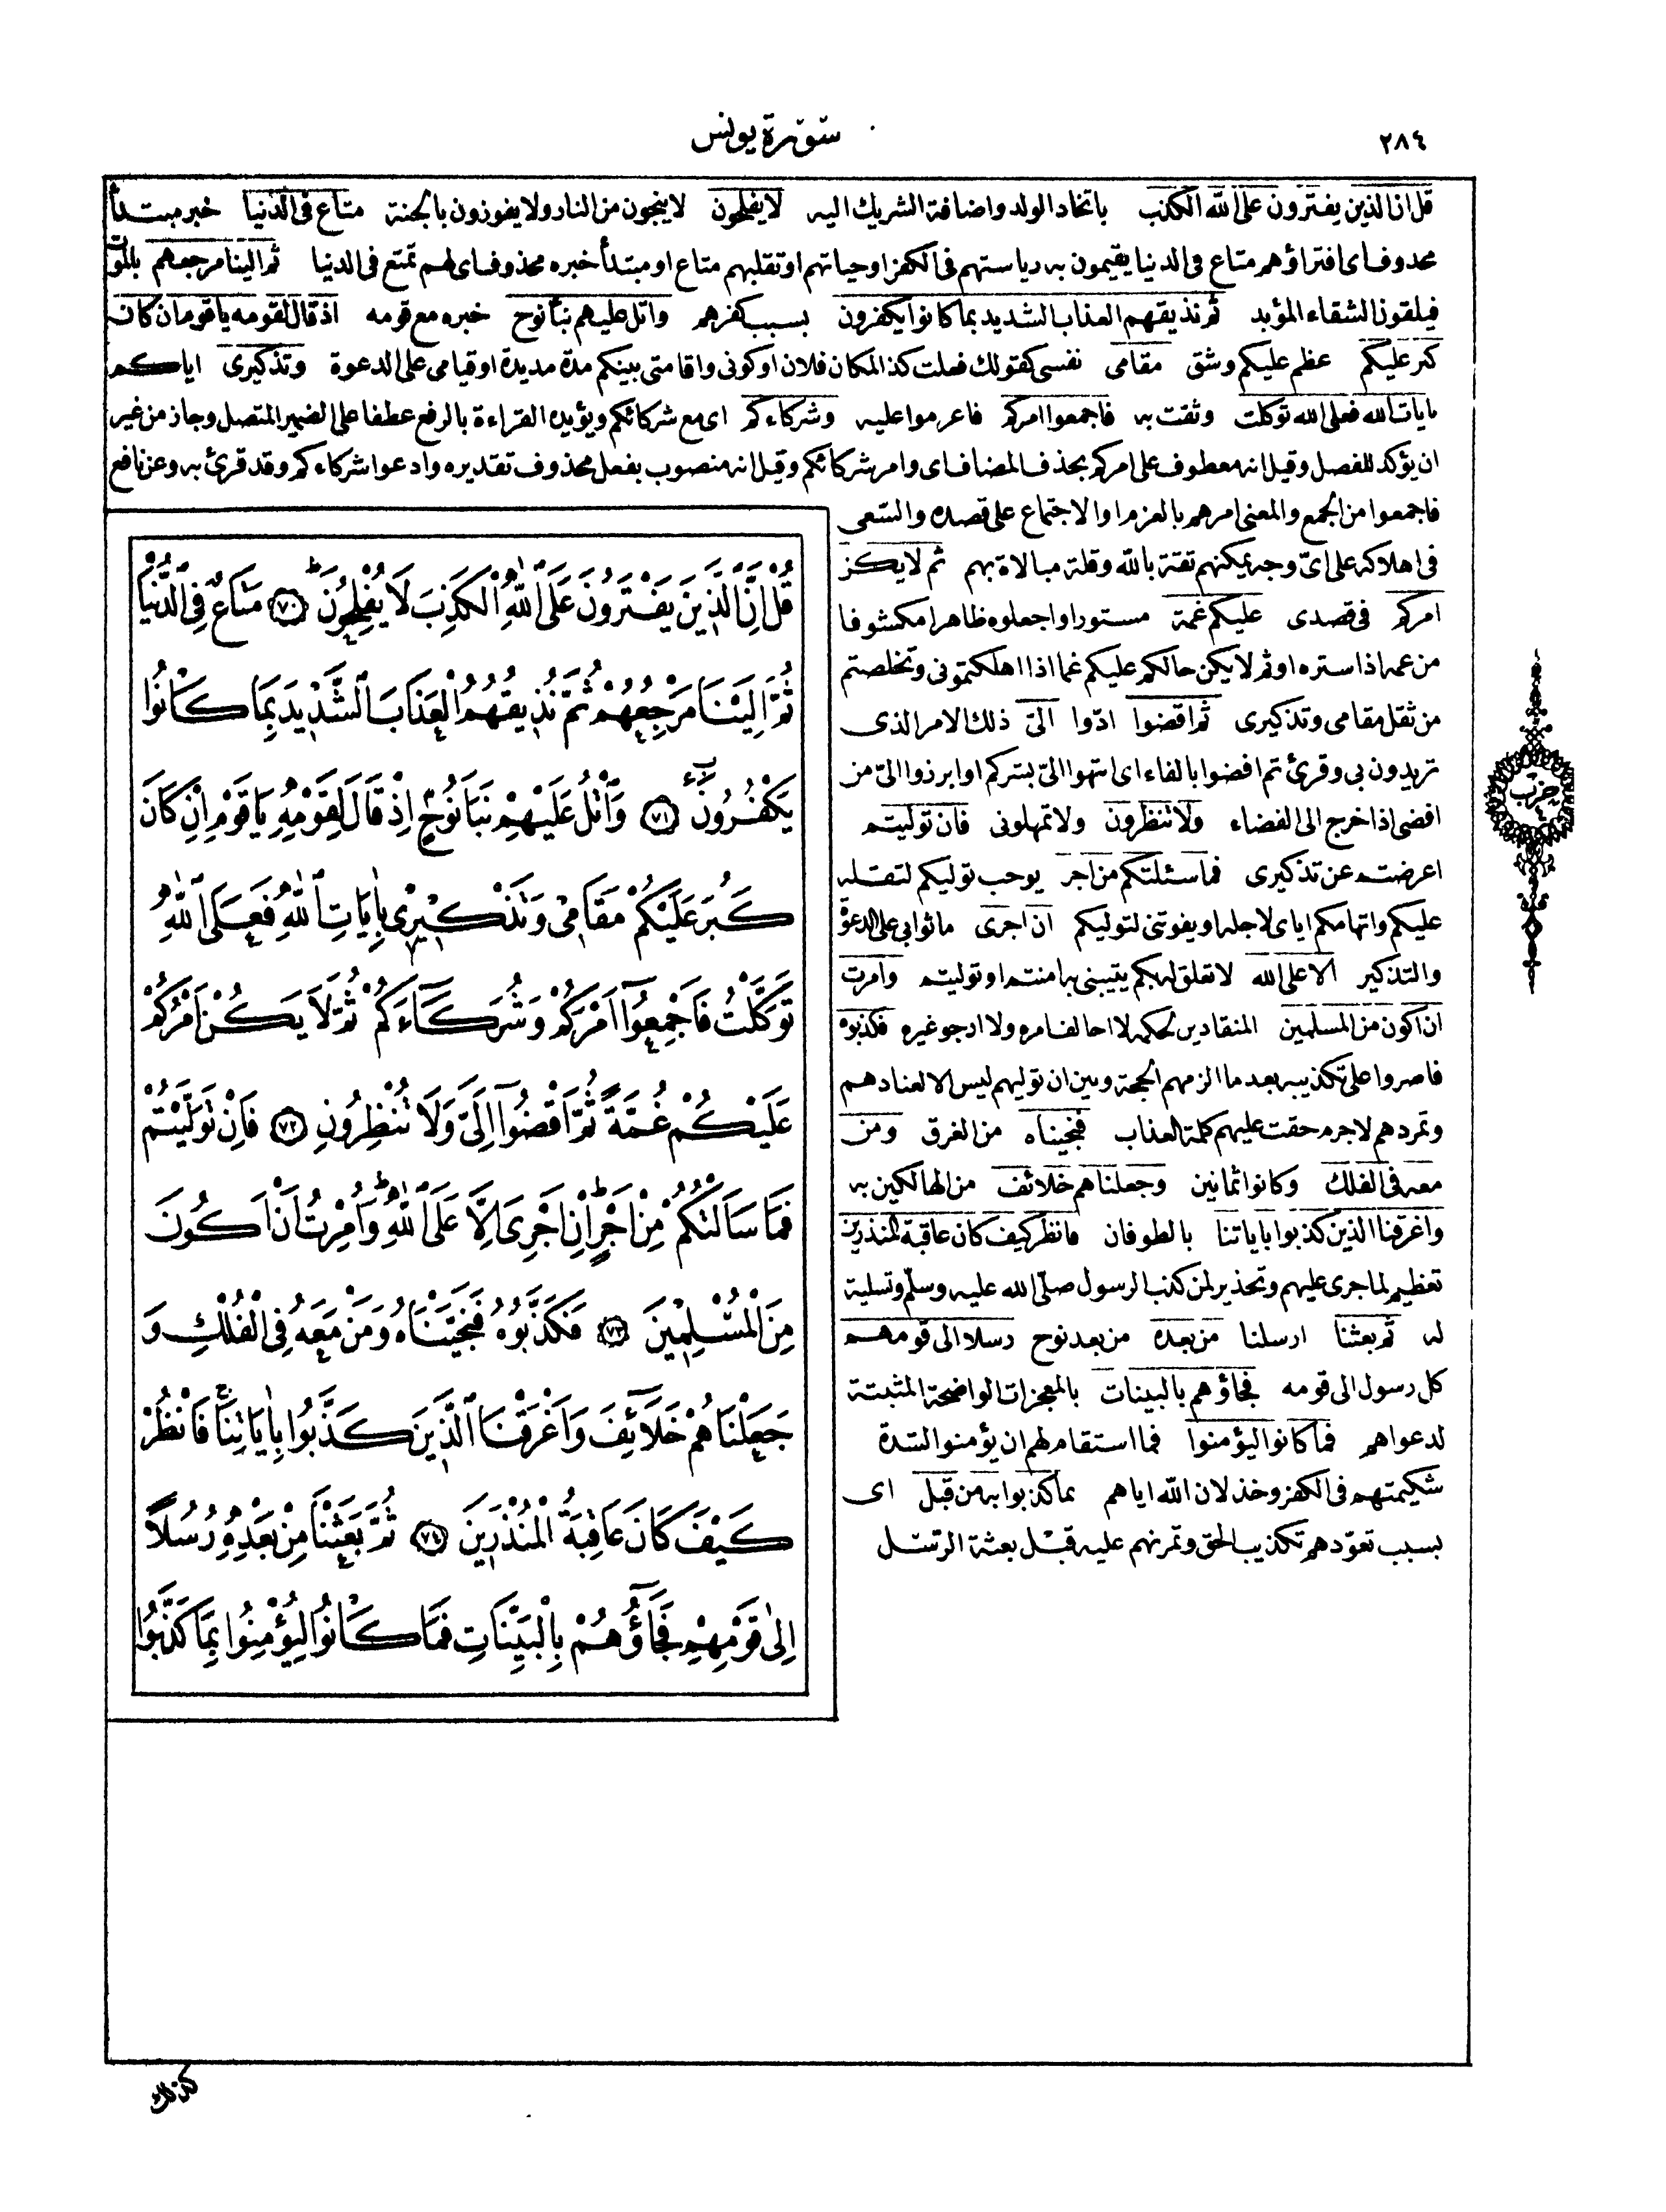 ٢٨٤
سورة يونس
قل ان الذين يفترون على الله الكذب باتخاذ الولد واضافة الشريك اليه لا يفلحون لا ينجون من النار ولا يفوزون بالجنة متاع فى الدنيا خبر مبتدأ
محذوف اى افتراؤهم متاع فى الدنيا يقيمون به رياستهم فى الكفر او حياتهم او تقلبهم متاع او مبتدأ خبره محذوف اى لهم تمتع فى الدنيا ثم الينا مرجعهم بالموت
فيلقون الشقاء المؤبد ثم نذيقهم العذاب الشديد بما كانوا يكفرون بسبب كفرهم واتل عليهم نبأ نوح خبره مع قومه اذ قال لقومه يا قوم ان كان
كبر عليكم عظم عليكم وشق مقامى نفسى كقولك فعلت كذا لمكان فلان او كونى واقامتى بينكم مدة مديدة او قيامى على الدعوة وتذكيرى اياكم
بايات الله فعلى الله توكلت وثقت به فاجمعوا امركم فاعزموا عليه وشركاءكم اى مع شركائكم ويؤيده القراءة بالرفع عطفا على الضمير المتصل وجاز من غير
ان يؤكد للفصل وقيل انه معطوف على امركم بحذف المضاف اى وامر شركائكم وقيل انه منصوب بفعل محذوف تقديره وادعوا شركاءكم وقد قرئ به وعن نافع
فاجمعوا من الجمع والمعنى امرهم بالعزم او الاجتماع على قصده والسعى
فى اهلاكه على اى وجه يمكنهم ثقة بالله وقلة مبالاة بهم ثم لا يكن
امركم فى قصدى عليكم غمة مستورا واجعلوه ظاهرا مكشوفا
من غمه اذا ستره او ثم لا يكن حالكم عليكم غما اذا اهلكتمونى وتخلصتم
من ثقل مقامى وتذكيرى ثم اقضوا ادوا الى ذلك الامر الذى
تريدون بى وقرئ ثم افضوا بالفاء اى انتهوا الى بشركم او ابرزوا الى من
افضى اذا خرج الى الفضاء ولا تنظرون ولا تمهلونى فان توليتم
اعرضتم عن تذكيرى فما سئلتكم من اجر يوجب توليكم لثقله
عليكم واتهامكم اياى لاجله او يفوتنى لتوليكم ان اجرى ما ثوابى على الدعوة
والتذكير الا على الله لا تعلق له بكم يثيبنى به امنتم او توليتم وامرت
ان اكون من المسلمين المنقادين لحكمه لا اخالف امره ولا ارجو غيره فكذبوه
فاصروا على تكذيبه بعد ما الزمهم الحجة وبين ان توليهم ليس الا لعنادهم
وتمردهم لا جرم حقت عليهم كلمة العذاب فنجيناه من الغرق ومن
معه فى الفلك وكانوا ثمانين وجعلناهم خلائف من الهالكين به
واغرقنا الذين كذبوا باياتنا بالطوفان فانظر كيف كان عاقبة المنذرين
تعظيم لما جرى عليهم وتحذير لمن كذب الرسول صلى الله عليه وسلم وتسلية
له ثم بعثنا ارسلنا من بعده من بعد نوح رسلا الى قومهم
كل رسول الى قومه فجاؤهم بالبينات بالمعجزات الواضحة المثبتة
لدعواهم فما كانوا ليؤمنوا فما استقام لهم ان يؤمنوا لشدة
شكيمتهم فى الكفر وخذلان الله اياهم بما كذبوا به من قبل اى
بسبب تعودهم تكذيب الحق وتمرنهم عليه قبل بعثة الرسل
قُلْ اِنَّ الَّذِينَ يَفْتَرُونَ عَلَى اللّٰهِ الْكَذِبَ لَا يُفْلِحُونَ ٧٠ مَتَاعٌ فِي الدُّنْيَا
ثُمَّ اِلَيْنَا مَرْجِعُهُمْ ثُمَّ نُذِيقُهُمُ الْعَذَابَ الشَّدِيدَ بِمَا كَانُوا
يَكْفُرُونَ ٧١ وَاتْلُ عَلَيْهِمْ نَبَاَ نُوحٍ اِذْ قَالَ لِقَوْمِهِ يَا قَوْمِ اِنْ كَانَ
كَبُرَ عَلَيْكُمْ مَقَامِي وَتَذْكِيرِي بِاٰيَاتِ اللّٰهِ فَعَلَى اللّٰهِ
تَوَكَّلْتُ فَاَجْمِعُوٓا اَمْرَكُمْ وَشُرَكَآءَكُمْ ثُمَّ لَا يَكُنْ اَمْرُكُمْ
عَلَيْكُمْ غُمَّةً ثُمَّ اقْضُوٓا اِلَيَّ وَلَا تُنْظِرُونِ ٧٢ فَاِنْ تَوَلَّيْتُمْ
فَمَا سَاَلْتُكُمْ مِنْ اَجْرٍ اِنْ اَجْرِيَ اِلَّا عَلَى اللّٰهِ وَاُمِرْتُ اَنْ اَكُونَ
مِنَ الْمُسْلِمِينَ ٧٣ فَكَذَّبُوهُ فَنَجَّيْنَاهُ وَمَنْ مَعَهُ فِي الْفُلْكِ وَ
جَعَلْنَاهُمْ خَلَآئِفَ وَاَغْرَقْنَا الَّذِينَ كَذَّبُوا بِاٰيَاتِنَا فَانْظُرْ
كَيْفَ كَانَ عَاقِبَةُ الْمُنْذَرِينَ ٧٤ ثُمَّ بَعَثْنَا مِنْ بَعْدِهِ رُسُلًا
اِلٰى قَوْمِهِمْ فَجَآؤُهُمْ بِالْبَيِّنَاتِ فَمَا كَانُوا لِيُؤْمِنُوا بِمَا كَذَّبُوا
حزب
كذلك